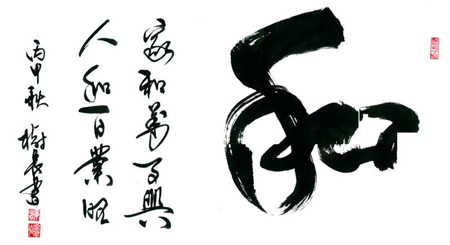 和
家和万事興
人和百業旺
丙申秋 樹長書